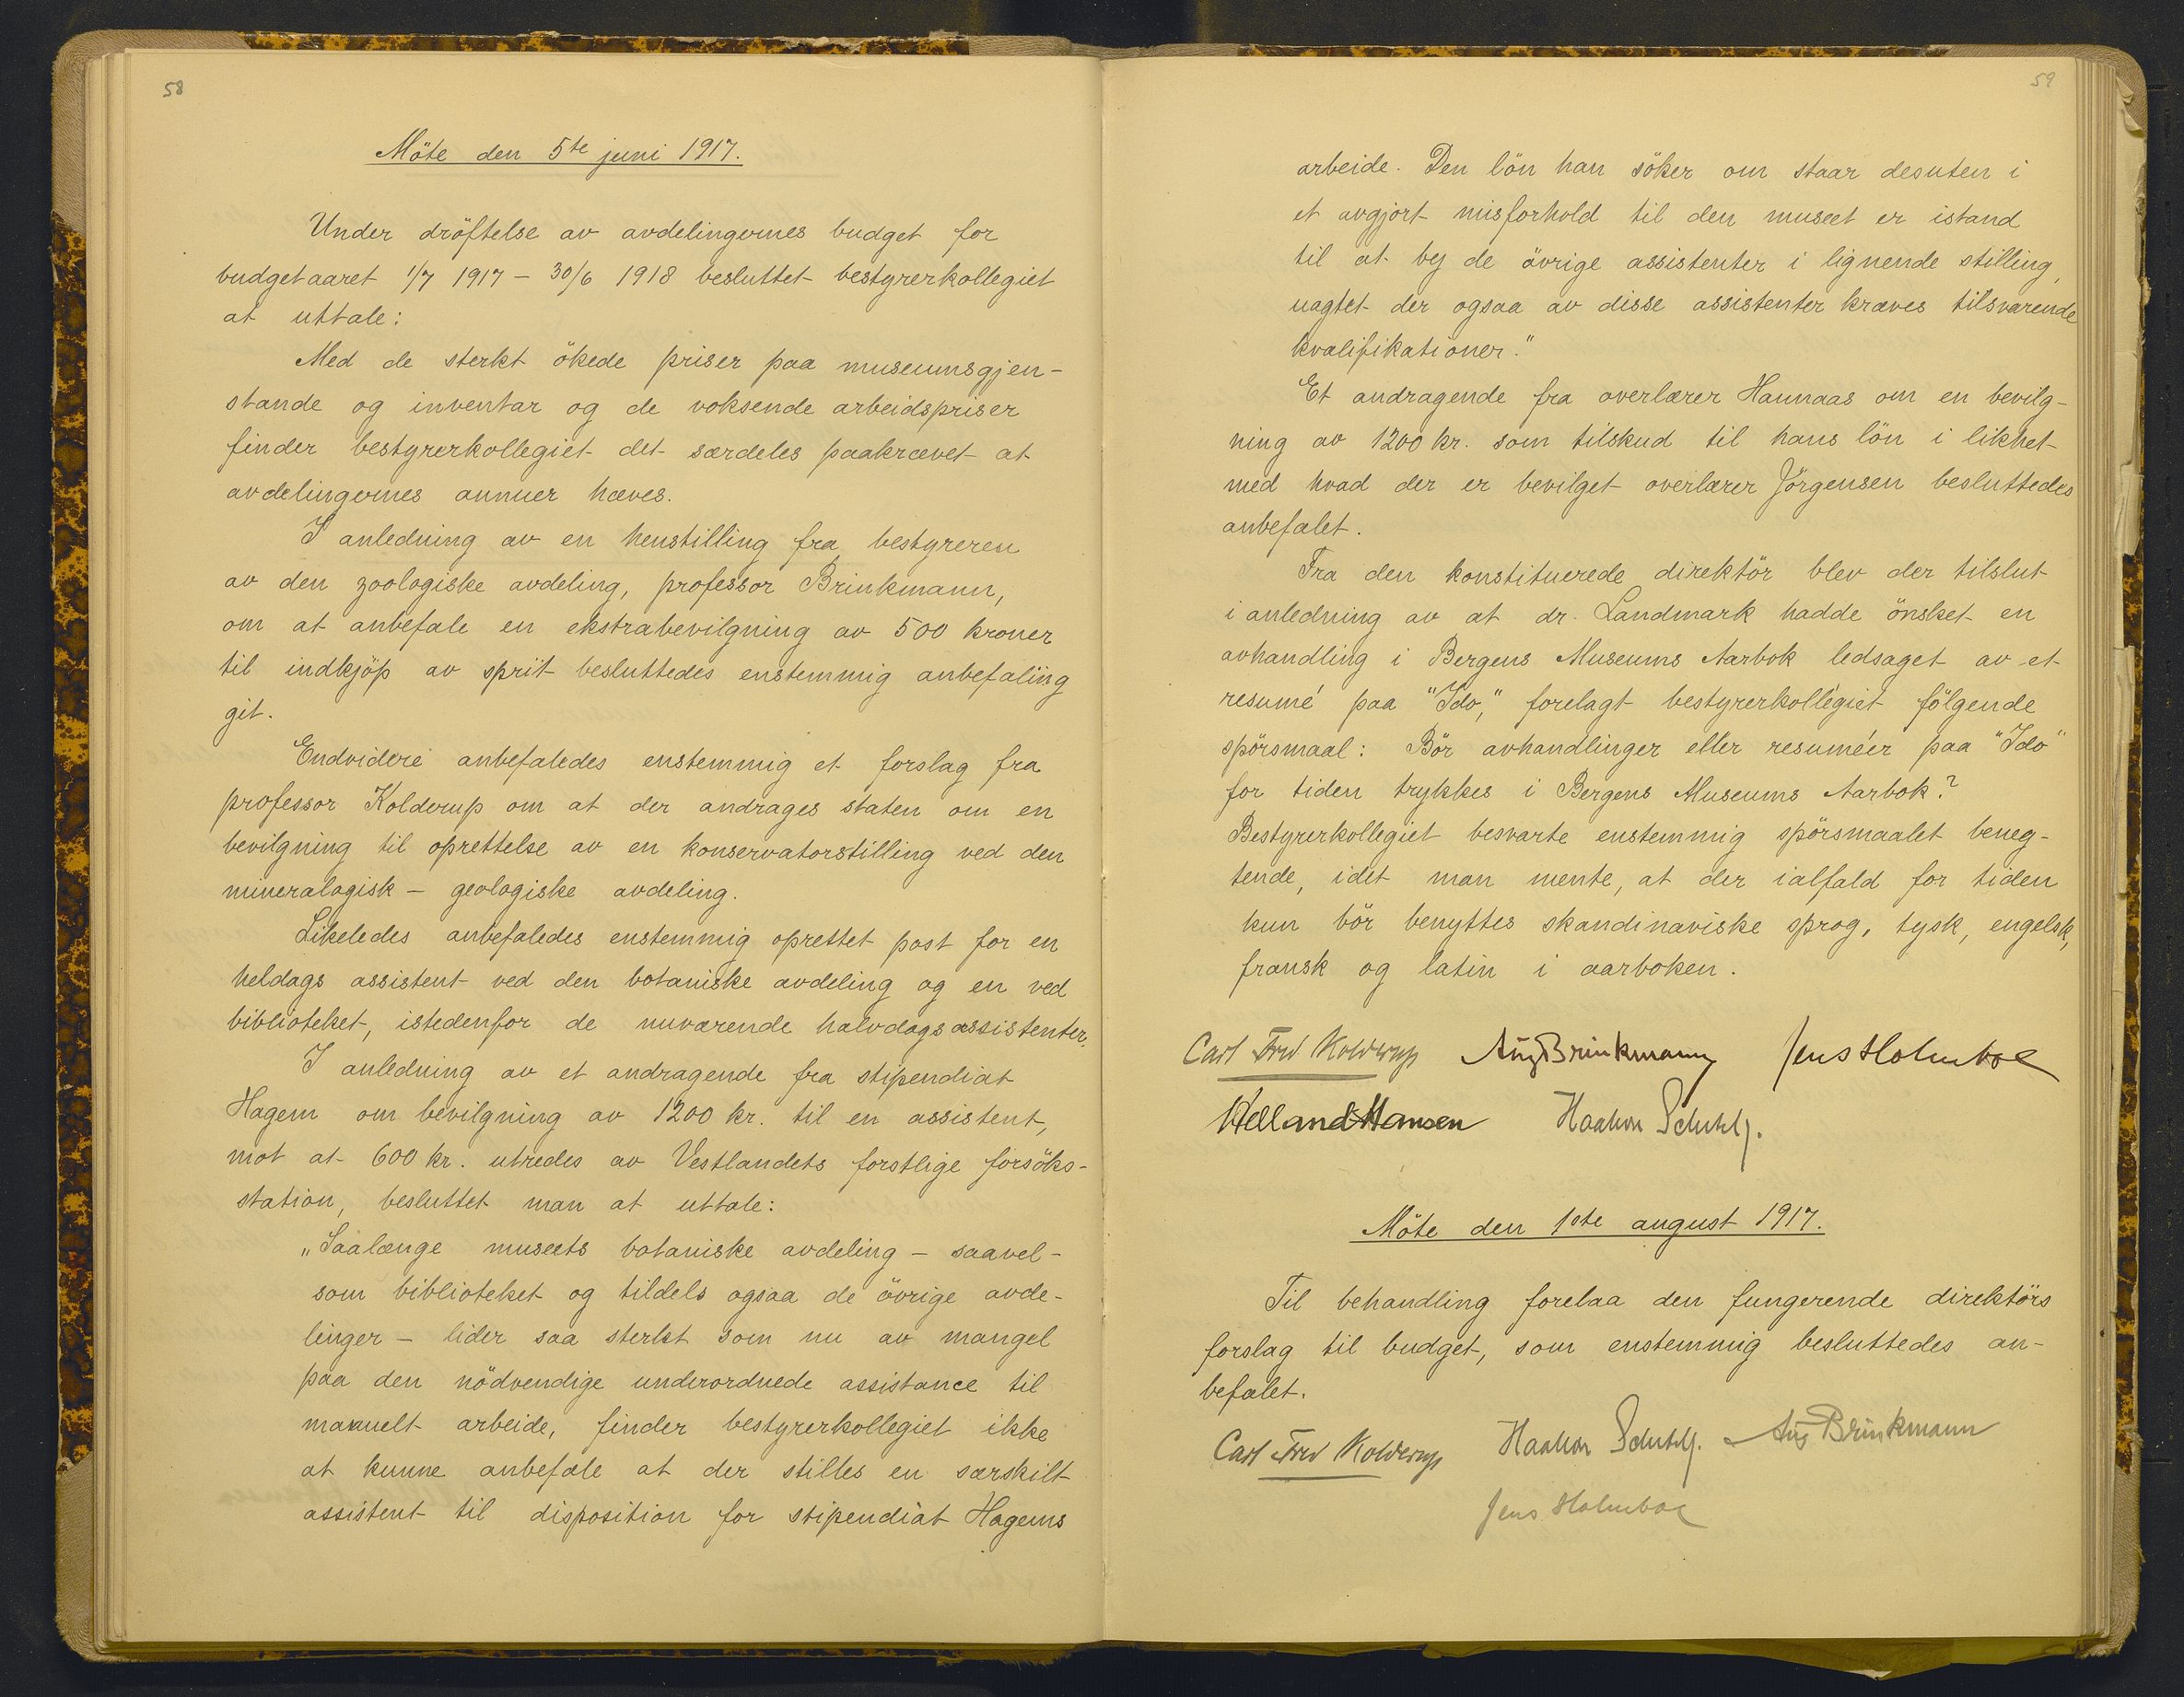 58
Möte den 5te juni 1917.
Under dröftelse av avdelingernes budget for
budgetaaret 1/7 1917 - 30/6 1918 besluttet bestyrerkollegiet
at uttale:
Med de sterkt ökede priser paa museumsgjen-
stande og inventar og de voksende arbeidspriser
finder bestyrerkollegiet det særdeles paakrævet at
avdelingernes annuer hæves.
I anledning av en henstilling fra bestyreren
av den zoologiske avdeling, professor Brinkmann,
om at anbefale en ekstrabevilgning av 500 kroner
til indkjöp av sprit besluttedes enstemmig anbefaling
git.
Endvidere anbefaledes enstemmig et forslag fra
professor Kolderup om at der andrages staten om en
bevilgning til oprettelse av en konservatorstilling ved den
mineralogisk - geologiske avdeling.
Likeledes anbefaledes enstemmig oprettet post for en
heldags assistent ved den botaniske avdeling og en ved
biblioteket, istedenfor de nuværende halvdagsassistenter.
I anledning av et andragende fra stipendiat
Hagem om bevilgning av 1200 kr. til en assistent,
mot at 600 kr. utredes av Vestlandets forstlige forsöks-
station, besluttet man at uttale:
„Saalænge museets botaniske avdeling - saavel-
som biblioteket og tildels ogsaa de övrige avde-
linger - lider saa sterkt som nu av mangel
paa den nödvendige underordnede assistance til
manuelt arbeide, finder bestyrerkollegiet ikke
at kunne anbefale at der stilles en særskilt
assistent til disposition for stipendiat Hagems
59
arbeide. Den lön han söker om staar desuten i
et avgjort misforhold til den museet er istand
til at by de övrige assistenter i lignende stilling,
uagtet der ogsaa av disse assistenter kræves tilsvarende
kvalifikationer."
Et andragende fra overlærer Hannaas om en bevilg-
ning av 1200 kr. som tilskud til hans lön i likhet
med hvad der er bevilget overlærer Jörgensen besluttedes
anbefalet.
Fra den konstituerede direktör blev der tilslut
i anledning av at dr. Landmark hadde önsket en
avhandling i Bergens Museums Aarbok ledsaget av et
resumé paa "Ido," forelagt bestyrerkollegiet fölgende
spörsmaal: Bör avhandlinger eller resuméer paa "Ido"
for tiden trykkes i Bergens Museums Aarbok?
Bestyrerkollegiet besvarte enstemmig spörsmaalet beneg-
tende, idet man mente, at der ialfald for tiden
kun bör benyttes skandinaviske sprog, tysk, engelsk,
fransk og latin i aarboken.
Carl Fred Kolderup Aug Brinkmann Jens Holmboe
Helland-Hansen Haakon Schetelig.
Möte den 1ste august 1917.
Til behandling forelaa den fungerende direktörs
forslag til budget, som enstemmig besluttedes an-
befalet.
Carl Fred Kolderup Haakon Schetelig. Aug Brinkmann
Jens Holmboe